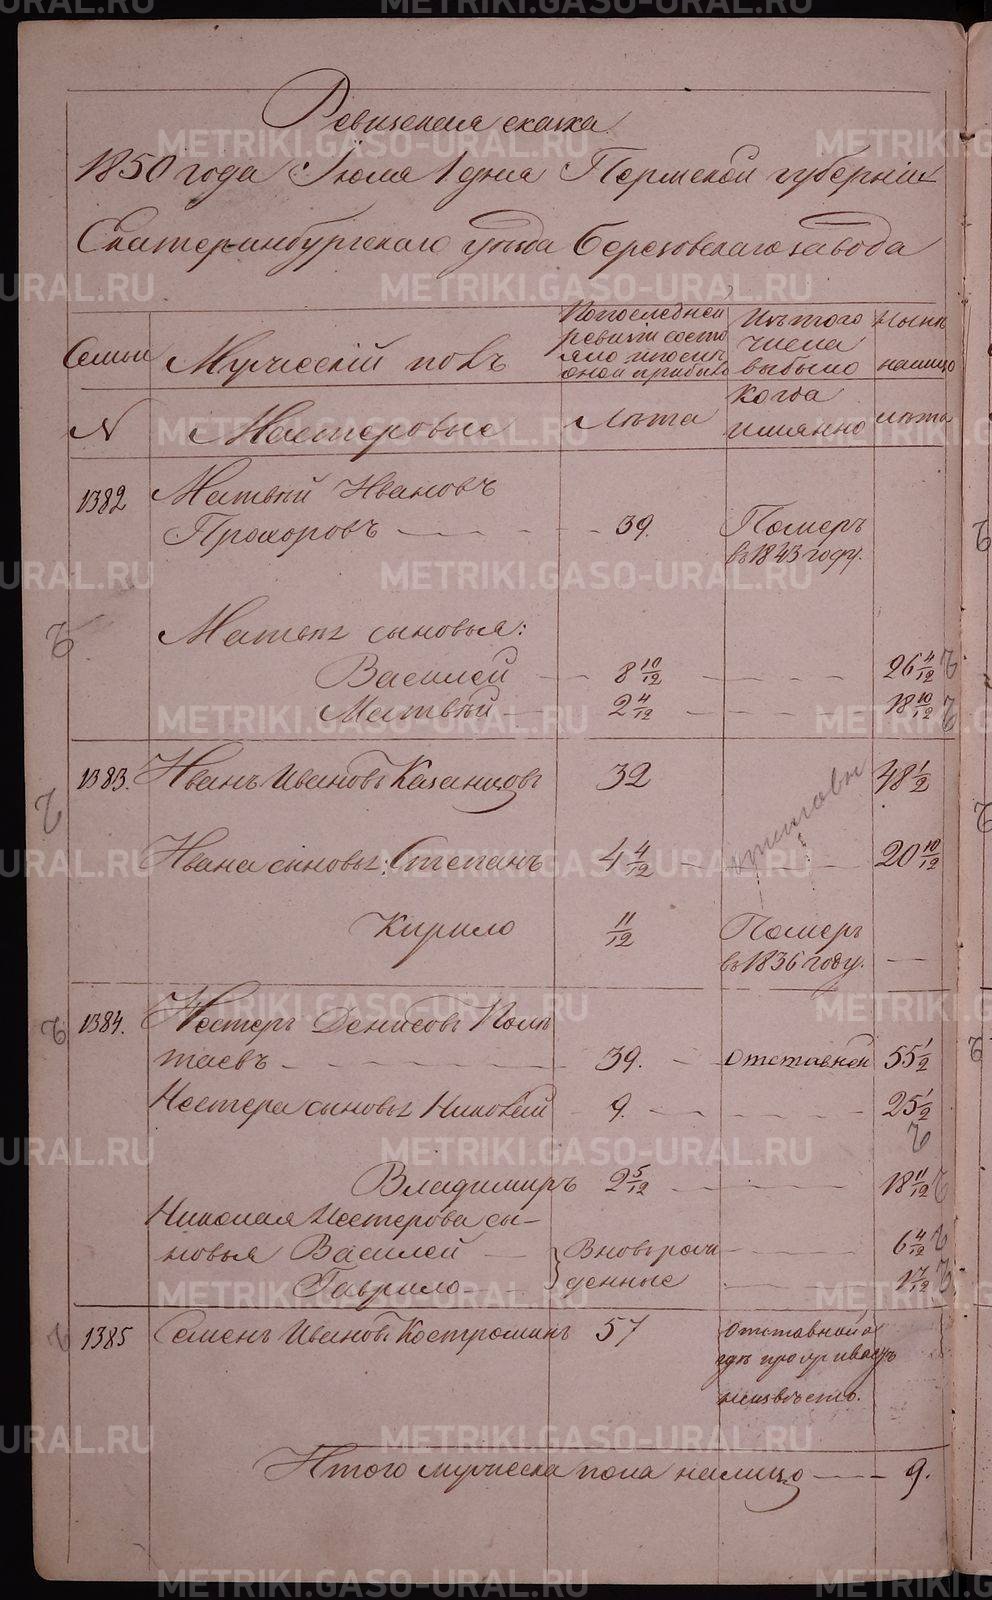 Ревизская сказка
1850 года Июля 1 дня Пермской губерніи
Екатеринбургскаго уѣзда Березовскаго завода
Семьи
Мужескій полъ
По последней
ревизіи состо
яло и после
оной прибыло
Изъ того
числа
выбыло
Нынѣ
налицо
№
Мастеровые
Лѣта
Когда
имянно
лѣта
1382
Матвѣй Ивановъ
Прохоровъ
39.
Померъ
въ 1843 году.
Матвѣя сыновья:
Василей
8 10/12
26 4/12
Матвѣй
2 4/12
18 10/12
1383.
Иванъ Ивановъ Казанцовъ
32
48 1/2
Ивана сыновья: Степанъ
4 4/12
20 10/12
Кирило
11/12
Померъ
въ 1836 году.
1384.
Нестеръ Денисовъ Полк
таевъ
39.
Отставной
55 1/2
Нестера сыновья Николай
9.
25 1/2
Владимиръ
2 5/12
18 11/12
Николая Нестерова сы-
новья Василей
Вновь рож
6 4/12
Гаврило
денные
1 7/12
1385
Семенъ Ивановъ Костроминъ
57
Отставной а
гдѣ проживаетъ
неизвѣстно.
Итого мужеска пола налицо
9.
METRIKI.GASO-URAL.RU